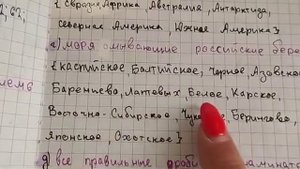 { Евразия, Африка, Австралия, Антарктида,
Северная Америка, Южная Америка }
в) моря омывающие российские берега
{ Каспийское, Балтийское, Черное, Азовское
Баренцево, Лаптевых, Белое, Карское,
Восточно-Сибирское, Берингово,
Японское, Охотское }
д) все правильные дроби